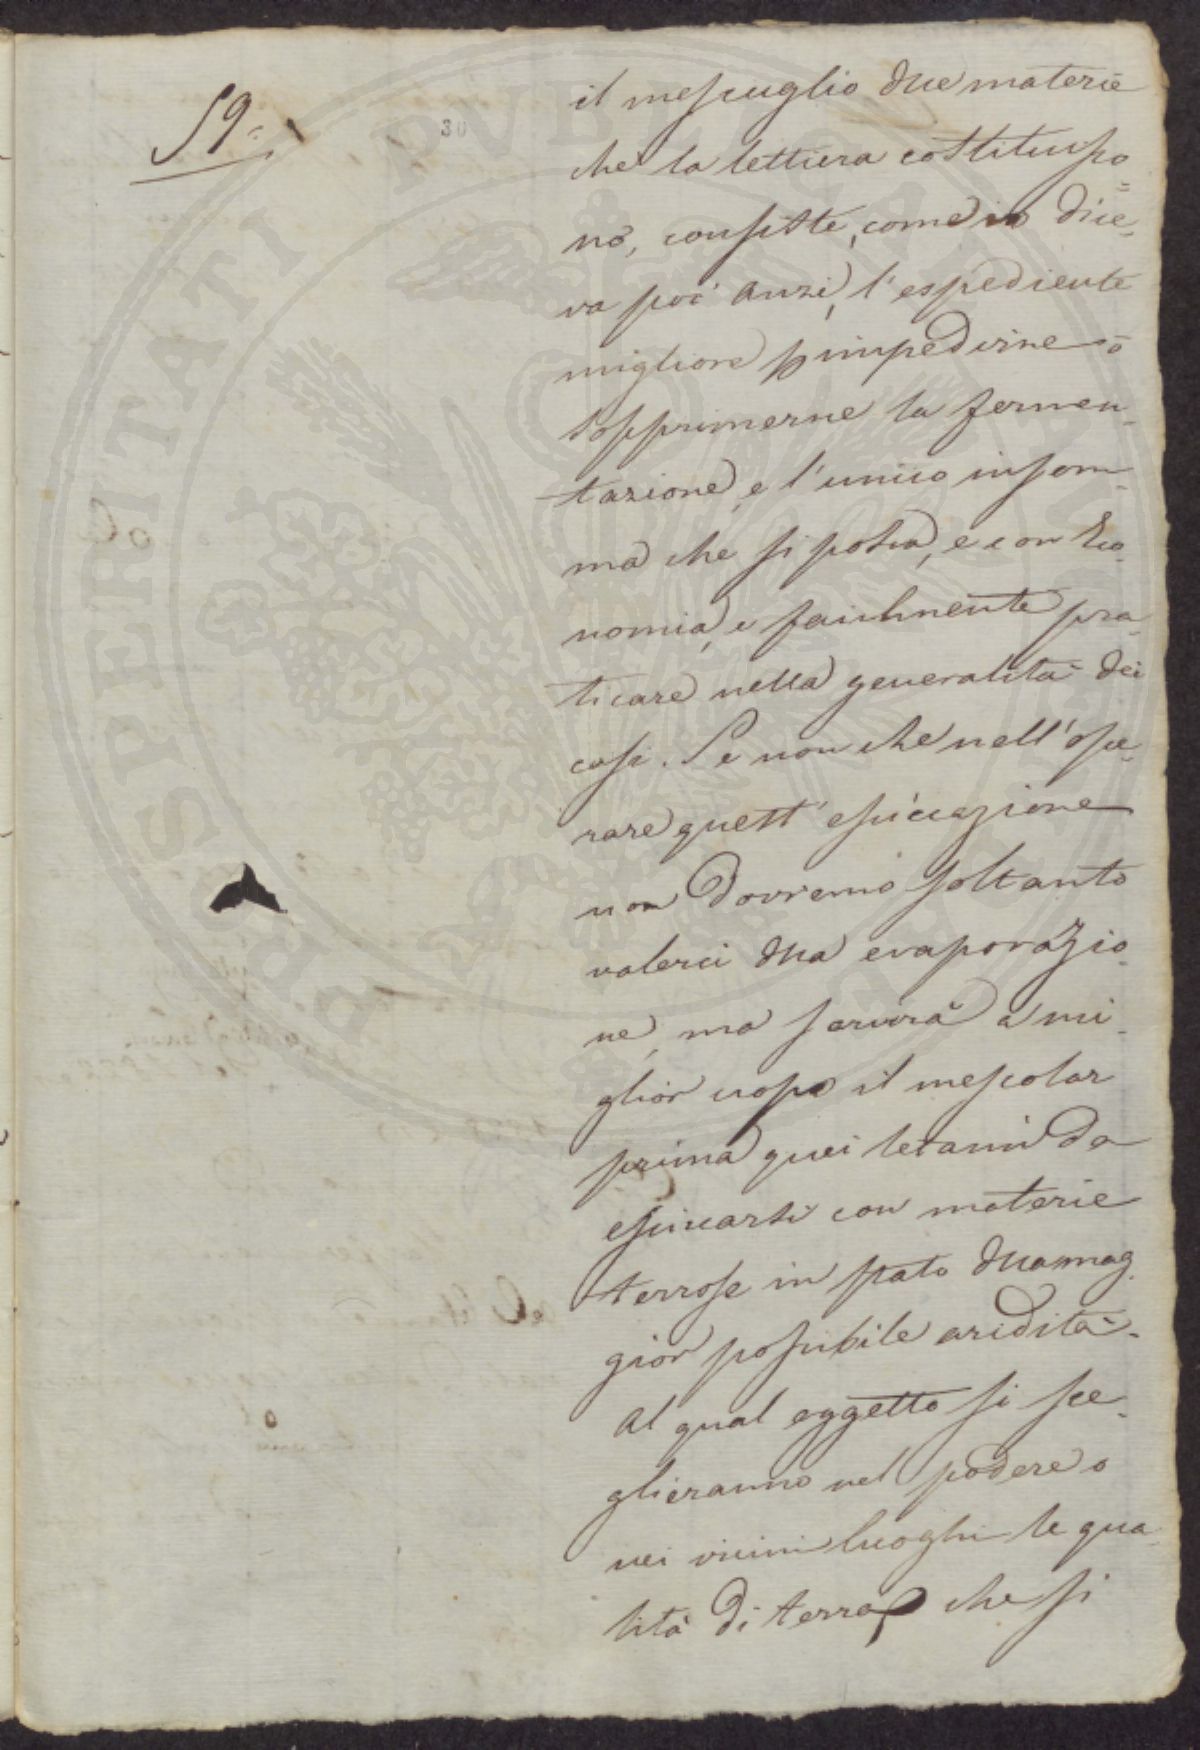 59.
30
il mescuglio delle materie
che la lettiera costituisco=
no, consiste, come io dice-
va poc' anzi, l'espediente
migliore p impedirne o
sopprimerne la fermen-
tazione, e l'unico insom-
ma che si possa, e con Eco-
nomia, e facilmente pra-
ticare nella generalità dei
casi. Se non che nell'ope-
rare quest' essiccazione
non dovremo soltanto
valerci della evaporazio-
ne, ma servirà a mi-
glior uopo il mescolar
prima quei letami da
essiccarsi con materie
terrose in stato della mag-
gior possibile aridità.
Al qual oggetto si sce-
glieranno nel podere o
nei vicini luoghi le qua-
lità di terra che si
PROSPERITATI PVBLICAE